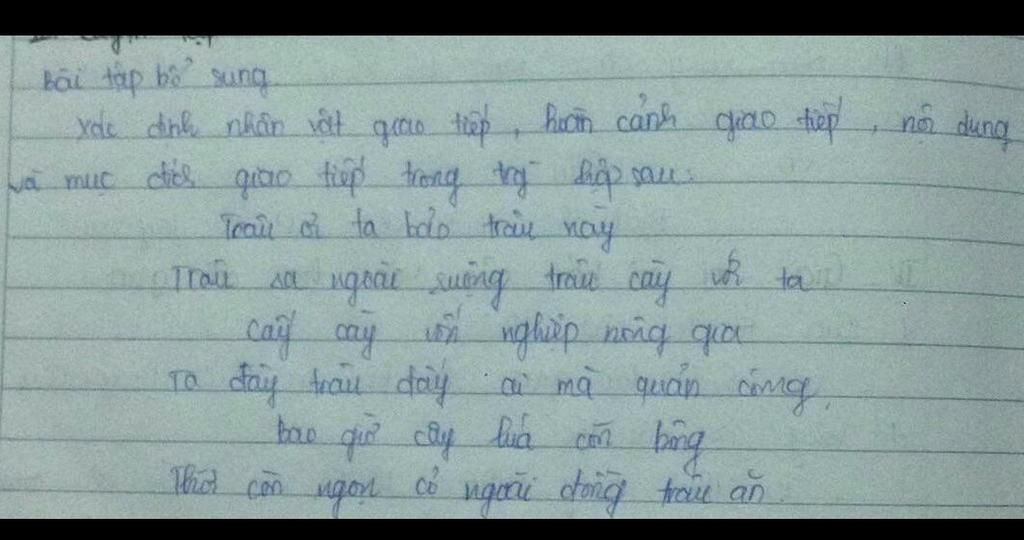 Bài tập bổ sung
Xác định nhân vật giao tiếp, hoàn cảnh giao tiếp, nội dung
và mục đích giao tiếp trong trg hợp sau:
Trâu ơi ta bảo trâu này
Trâu ra ngoài ruộng trâu cày với ta
Cấy cày vốn nghiệp nông gia
Ta đây trâu đấy ai mà quản công.
Bao giờ cây lúa còn bông
Thời còn ngọn cỏ ngoài đồng trâu ăn.